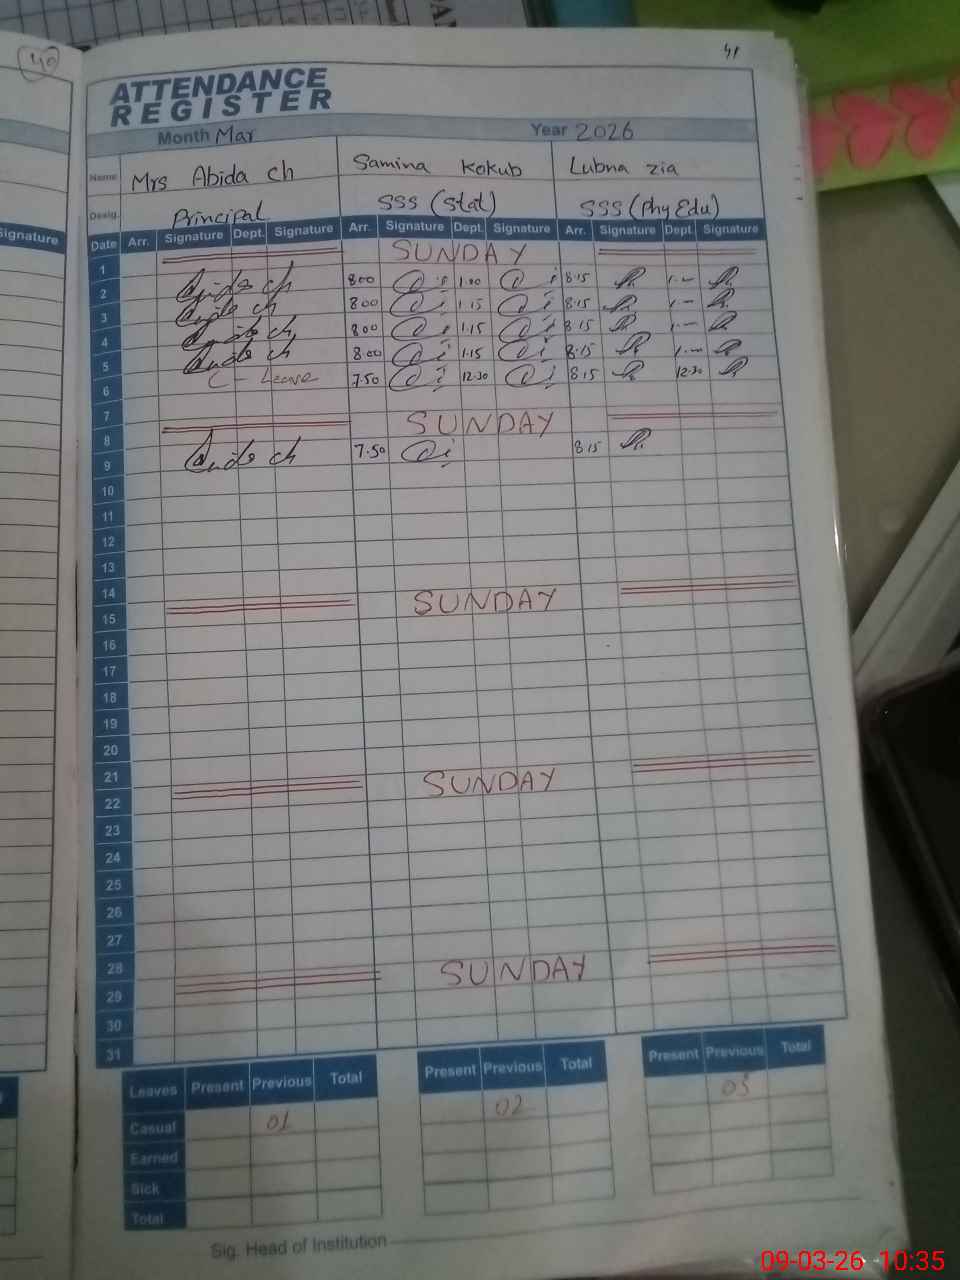 40
41
ATTENDANCE
REGISTER
Month Mar Year 2026
Name Mrs Abida ch Samina Kokub Lubna zia
Desig. Principal SSS (Stat) SSS (Phy Edu)
Signature
Date Arr. Signature Dept. Signature Arr. Signature Dept. Signature Arr. Signature Dept. Signature
1 SUNDAY
2 ch 800 1.00 8.15 1.—
3 ch 800 1.15 8.15 1.—
4 ch 800 1.15 8.15 1.—
5 ch 8.00 1.15 8.15 1.—
6 C - Leave 7.50 12.30 8.15 12.30
7
8 SUNDAY
9 ch 7.50 8.15
10
11
12
13
14
15 SUNDAY
16
17
18
19
20
21
22 SUNDAY
23
24
25
26
27
28
29 SUNDAY
30
31
Leaves Present Previous Total Present Previous Total Present Previous Total
Casual 01 02 03
Earned
Sick
Total
Sig. Head of Institution
09-03-26 10:35